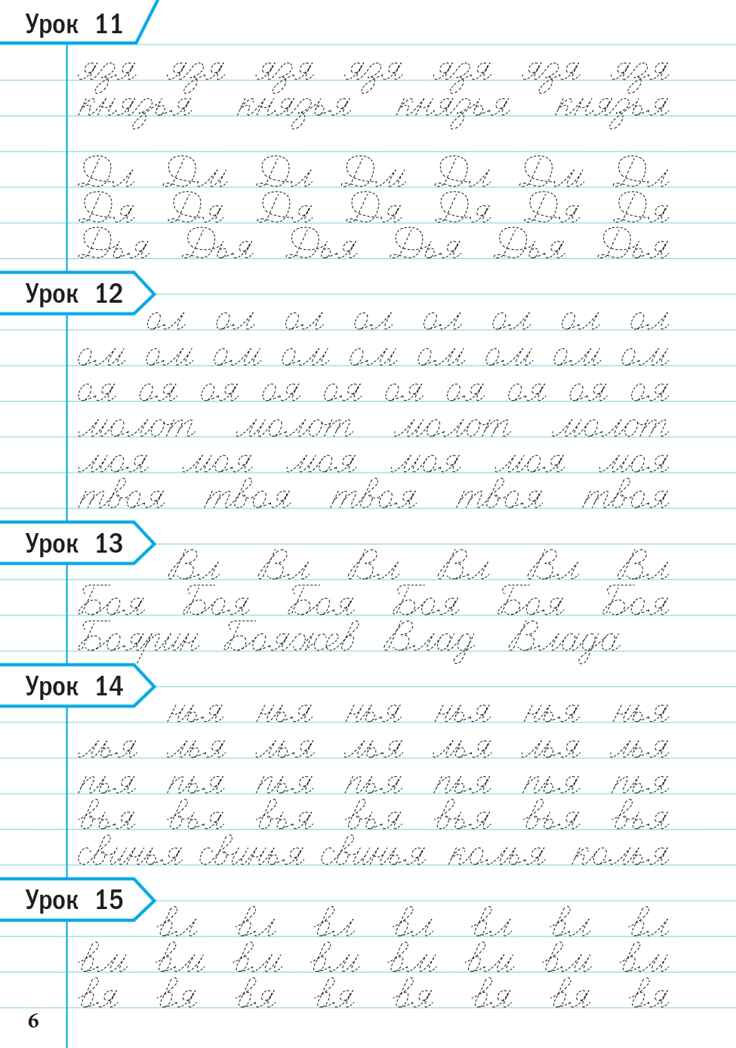 Урок 11
язя язя язя язя язя язя язя
князья князья князья князья
Дл Дм Дл Дм Дл Дм Дл
Дя Дя Дя Дя Дя Дя Дя
Дья Дья Дья Дья Дья Дья
Урок 12
ол ол ол ол ол ол ол ол
ом ом ом ом ом ом ом ом ом
оя оя оя оя оя оя оя оя оя оя
молот молот молот молот
моя моя моя моя моя моя
твоя твоя твоя твоя твоя
Урок 13
Вл Вл Вл Вл Вл Вл
Боя Боя Боя Боя Боя Боя
Боярин Бояжев Влад Влада
Урок 14
нья нья нья нья нья нья
лья лья лья лья лья лья лья
пья пья пья пья пья пья пья
вья вья вья вья вья вья вья
свинья свинья свинья колья колья
Урок 15
вл вл вл вл вл вл вл
вм вм вм вм вм вм вм вм
вя вя вя вя вя вя вя вя
6